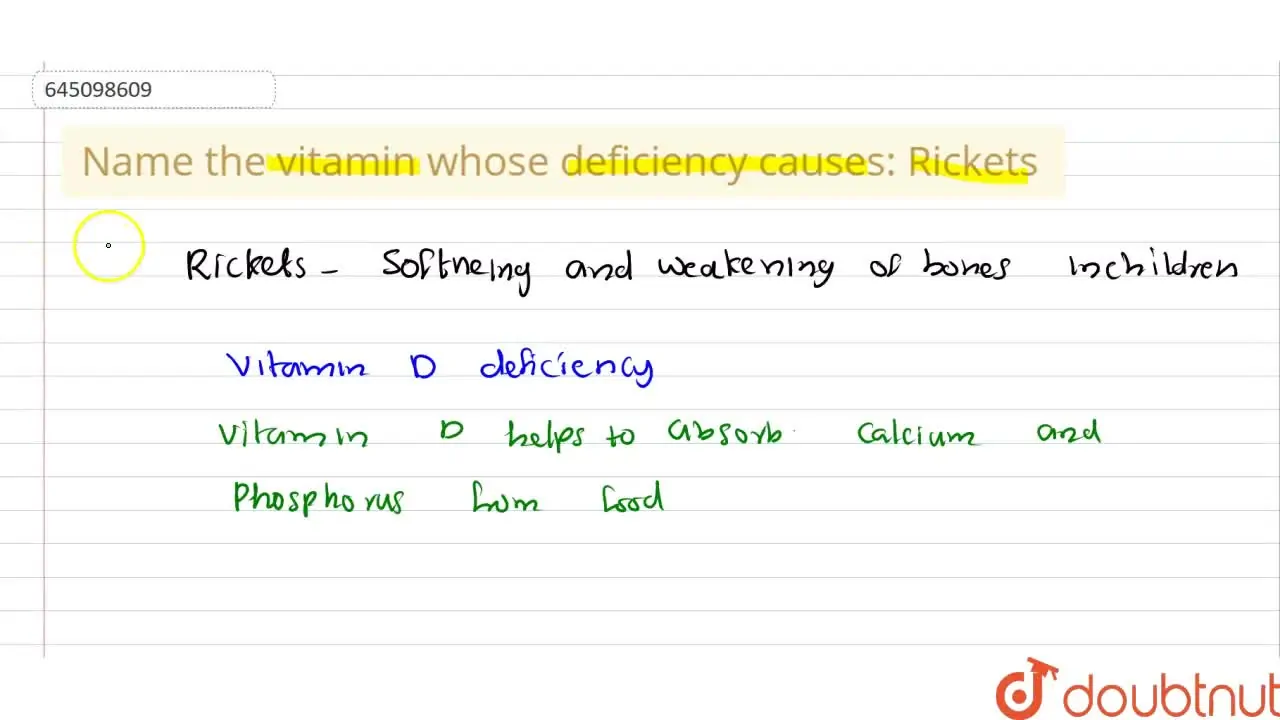 645098609
Name the vitamin whose deficiency causes: Rickets
Rickets - Softneing and weakening of bones inchildren
Vitamin D deficiency
Vitamin D helps to absorb calcium and
Phosphorus from food
doubtnut